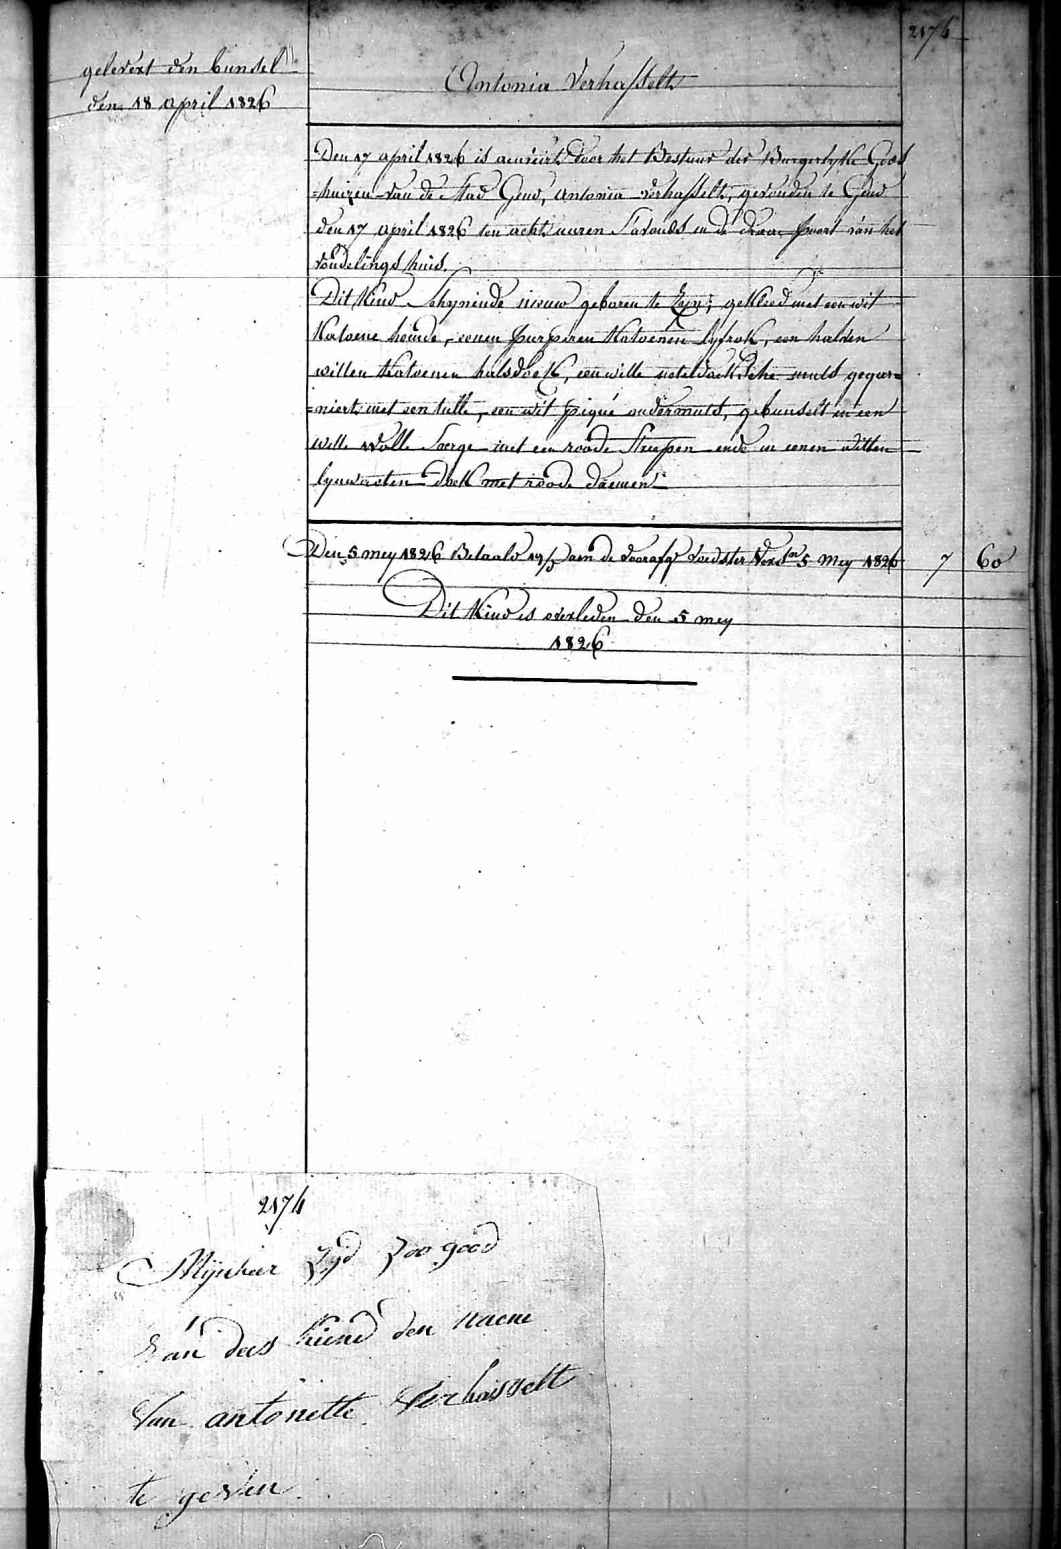 2174
gelevert den bunsel
den 18 april 1826
Antonia Verhasselt
Den 17 april 1826 is aenveirt door het Bestuur der Burgerlyke Gods
=huizen van de Stad Gend, Antonia Verhasselt, gevonden te Gend
den 17 april 1826 ten acht uuren S'avonds in de draai poort van het
vondelings huis.
Dit Kind Schynende nieuw geboren te Zyn; gekleed met een wit
Katoene hemde, eenen purperen Katoenen lyfrok, een halven
witten Katoenen halsdoek, een witte neteldoeksche muts gegar=
=niert met een tulle, een wit piqué ondermuts, gebunselt in een
witte wolle Saerge met een roode Streepen ende in eenen witten
lynwaeten doek met roode
Den 5 mey 1826 Betaald aan de voedster 5 mey 1826 7 60
Dit Kind is overleden den 5 mey
1826
2174
Mijnheer Zyd Zoo good
van des kiend den naeme
van antonette Verhasselt
te geven